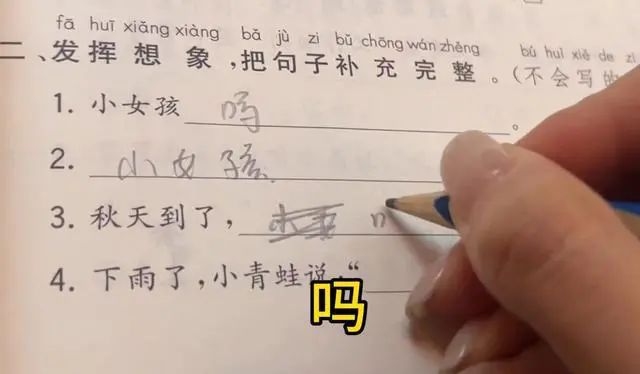 fā huī xiǎng xiàng bǎ jù zi bǔ chōng wán zhěng bú huì xiě de zì
二、发挥想象,把句子补充完整。(不会写的
1. 小女孩 吗。
2. 小女孩
3. 秋天到了,
4. 下雨了,小青蛙说,“
吗